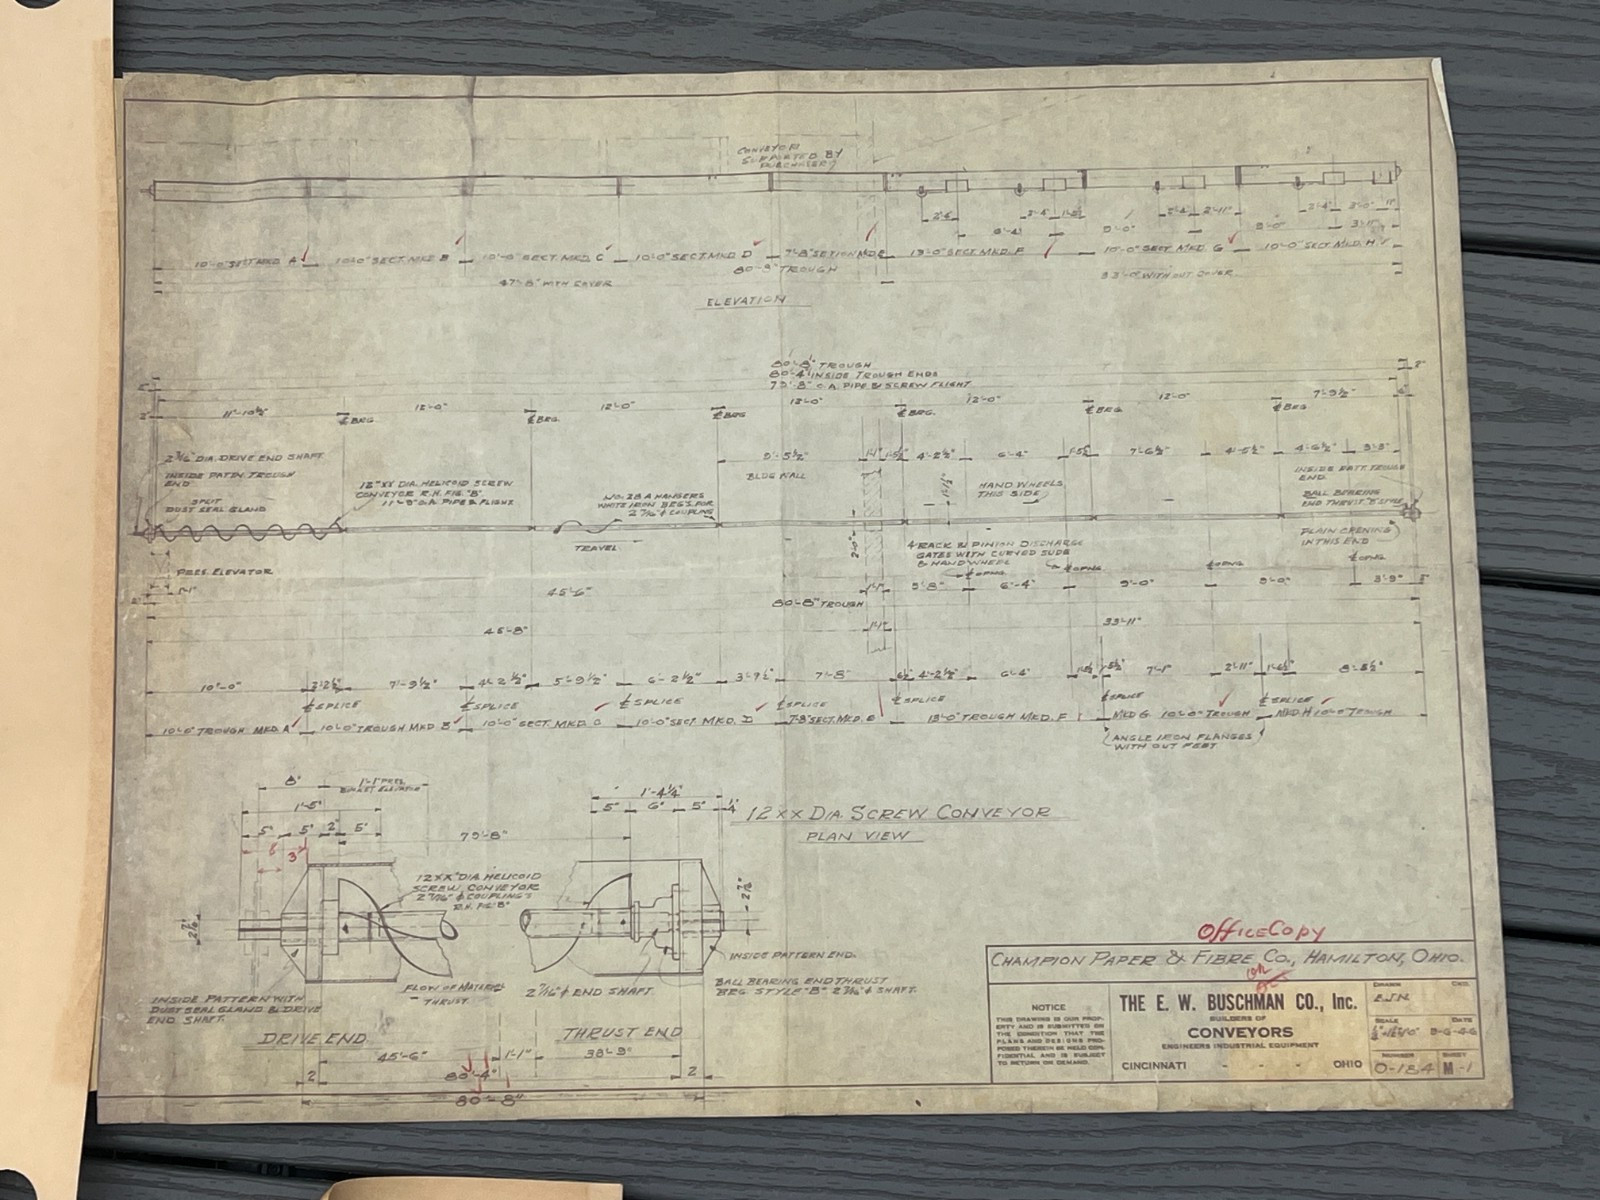 CONVEYOR
SUPPORTED BY
PURCHASER
2'-6" 2'-11" 3'-0" 11"
6'-4" 9'-0" 9'-0" 3'-11"
10'-0" SECT. MKD A 10'-0" SECT. MKD B 10'-0" SECT. MKD. C 10'-0" SECT. MKD D 7'-8" SECTION MKD. E 13'-0" SECT. MKD. F 10'-0" SECT. MKD. G 10'-0" SECT. MKD. H
80'-8" TROUGH
47'-8" WITH COVER
33'-0" WITHOUT COVER
ELEVATION
80'-8" TROUGH
80'-4" INSIDE TROUGH ENDS
79'-8" O.A. PIPE & SCREW FLIGHT
11'-10½" 12'-0" 12'-0" 12'-0" 12'-0" 12'-0" 7'-9½"
℄ BRG. ℄ BRG. ℄ BRG ℄ BRG. ℄ BRG ℄ BRG
9'-5½" 1'-1" 1'-5½" 4'-2½" 6'-4" 1'-5½" 7'-6½" 4'-5½" 4'-6½" 3'-3"
2 7/16" DIA. DRIVE END SHAFT
INSIDE PATTN TROUGH
END
SPLIT
DUST SEAL GLAND
12" XX DIA. HELICOID SCREW
CONVEYOR R.H. FIG. "B"
11'-8" O.A. PIPE & FLIGHT
NO. 28 A HANGERS
WHITE IRON BRG'S. FOR
2 7/16" ⌀ COUPLING
BLDG WALL
HAND WHEELS
THIS SIDE
INSIDE PATT. TROUGH
END.
BALL BEARING
END THRUST "B" STYLE
PLAIN OPENING
IN THIS END
TRAVEL
2'-0"
4 RACK & PINION DISCHARGE
GATES WITH CURVED SLIDE
& HANDWHEEL
℄ OPNG. ℄ OPNG. ℄ OPNG ℄ OPNG
PRES. ELEVATOR
1'-1"
45'-6" 1'-1" 5'-8" 6'-4" 9'-0" 9'-0" 3'-9"
80'-8" TROUGH
45'-8" 1'-1" 33'-11"
10'-0" 2'-2½" 7'-9½" 4'-2½" 5'-9½" 6'-2½" 3'-7½" 7'-8" 4'-2½" 6'-4" 7'-1" 2'-11" 8'-5½"
℄ SPLICE ℄ SPLICE ℄ SPLICE ℄ SPLICE ℄ SPLICE ℄ SPLICE ℄ SPLICE
10'-0" TROUGH MKD. A 10'-0" TROUGH MKD B 10'-0" SECT. MKD. C 10'-0" SECT. MKD. D 7'-8" SECT. MKD. E 13'-0" TROUGH MKD. F MKD G. 10'-0" TROUGH MKD. H 10'-0" TROUGH
ANGLE IRON FLANGES
WITH OUT FEET
8" 1'-1" PRES.
BUCKET ELEVATOR
1'-5"
5" 5" 2" 5"
79'-8"
1'-4¼"
5" 6" 5" ¼
6" 3"
12 XX DIA. SCREW CONVEYOR
PLAN VIEW
12XX" DIA. HELICOID
SCREW CONVEYOR
2 7/16" ⌀ COUPLING'S
R.H. FIG. "B"
2 7/16"
2 7/16"
FLOW OF MATERIAL
THRUST.
2 7/16" ⌀ END SHAFT.
INSIDE PATTERN END.
BALL BEARING END THRUST
BRG. STYLE "B" 2 7/16" ⌀ SHAFT.
INSIDE PATTERN WITH
DUST SEAL GLAND & DRIVE
END SHAFT.
DRIVE END
THRUST END
45'-6" 1'-1" 33'-9"
2 80'-4" 2
80'-8"
OFFICE COPY
CHAMPION PAPER & FIBRE CO., HAMILTON, OHIO.
NOTICE
THIS DRAWING IS OUR PROP-
ERTY AND IS SUBMITTED ON
THE CONDITION THAT THE
PLANS AND DESIGNS PRO-
POSED THEREIN BE HELD CON-
FIDENTIAL AND IS SUBJECT
TO RETURN ON DEMAND.
THE E. W. BUSCHMAN CO., Inc.
BUILDERS OF
CONVEYORS
ENGINEERS INDUSTRIAL EQUIPMENT
CINCINNATI - - - OHIO
DRAWN CKD.
E.J.N.
SCALE DATE
8-6-46
NUMBER SHEET
O-184 M-1